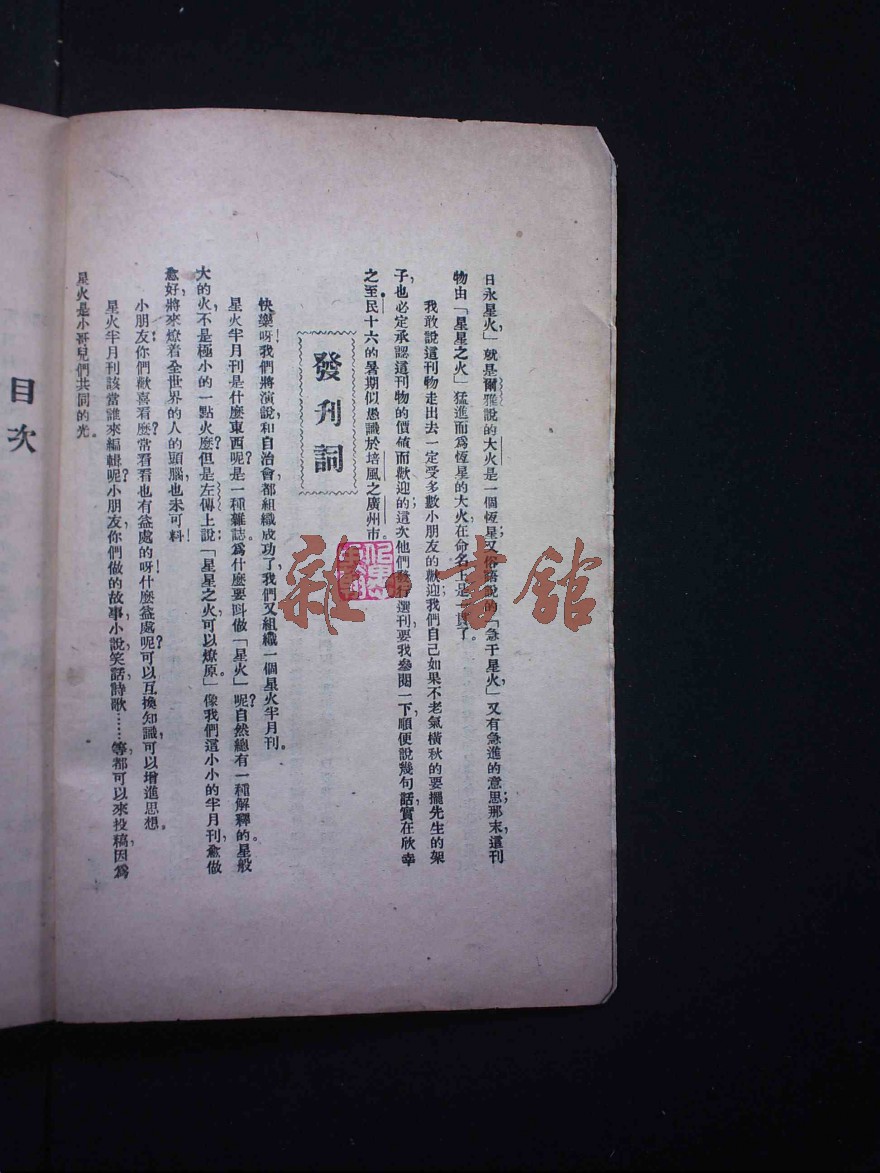 日永星火，」就是爾雅說的大火，是一個恆星；又俗語說的「急于星火，」又有急進的意思；那末，這刊
物由「星星之火」猛進而爲恆星的大火，在命名上是一貫了。
我敢說這刊物走出去，一定受多數小朋友的歡迎；我們自己如果不老氣橫秋的要擺先生的架
子，也必定承認這刊物的價値而歡迎的；這次他們發行選刊，要我參閱一下，順便說幾句話，實在欣幸
之至。民十六的暑期似愚識於培風之廣州市。
發刊詞
快樂呀！我們將演說和自治會都組織成功了，我們又組織一個星火半月刊。
星火半月刊是什麼東西呢？是一種雜誌。爲什麼要呌做「星火」呢？自然總有一種解釋的。星般
大的火，不是極小的一點火麼？但是左傳上說：「星星之火，可以燎原。」像我們這小小的半月刊，愈做
愈好，將來燎着全世界的人的頭腦，也未可料！
小朋友！你們歡喜看麼？常看看也有益處的呀！什麼益處呢？可以互換知識，可以增進思想。
星火半月刊該當誰來編輯呢？小朋友，你們做的故事，小說，笑話，詩歌……等，都可以來投稿，因爲
星火是小哥兒們共同的光。
目次
雜書館